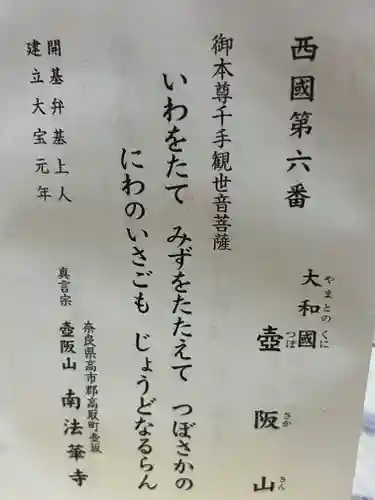 西國第六番
大和國
やまとのくに
壺阪山
つぼさかさん
御本尊千手観世音菩薩
いわをたて みずをたたえて つぼさかの
にわのいさごも じょうどなるらん
開基弁基上人
建立大宝元年
奈良県高市郡高取町壺阪
真言宗 壺阪山 南法華寺